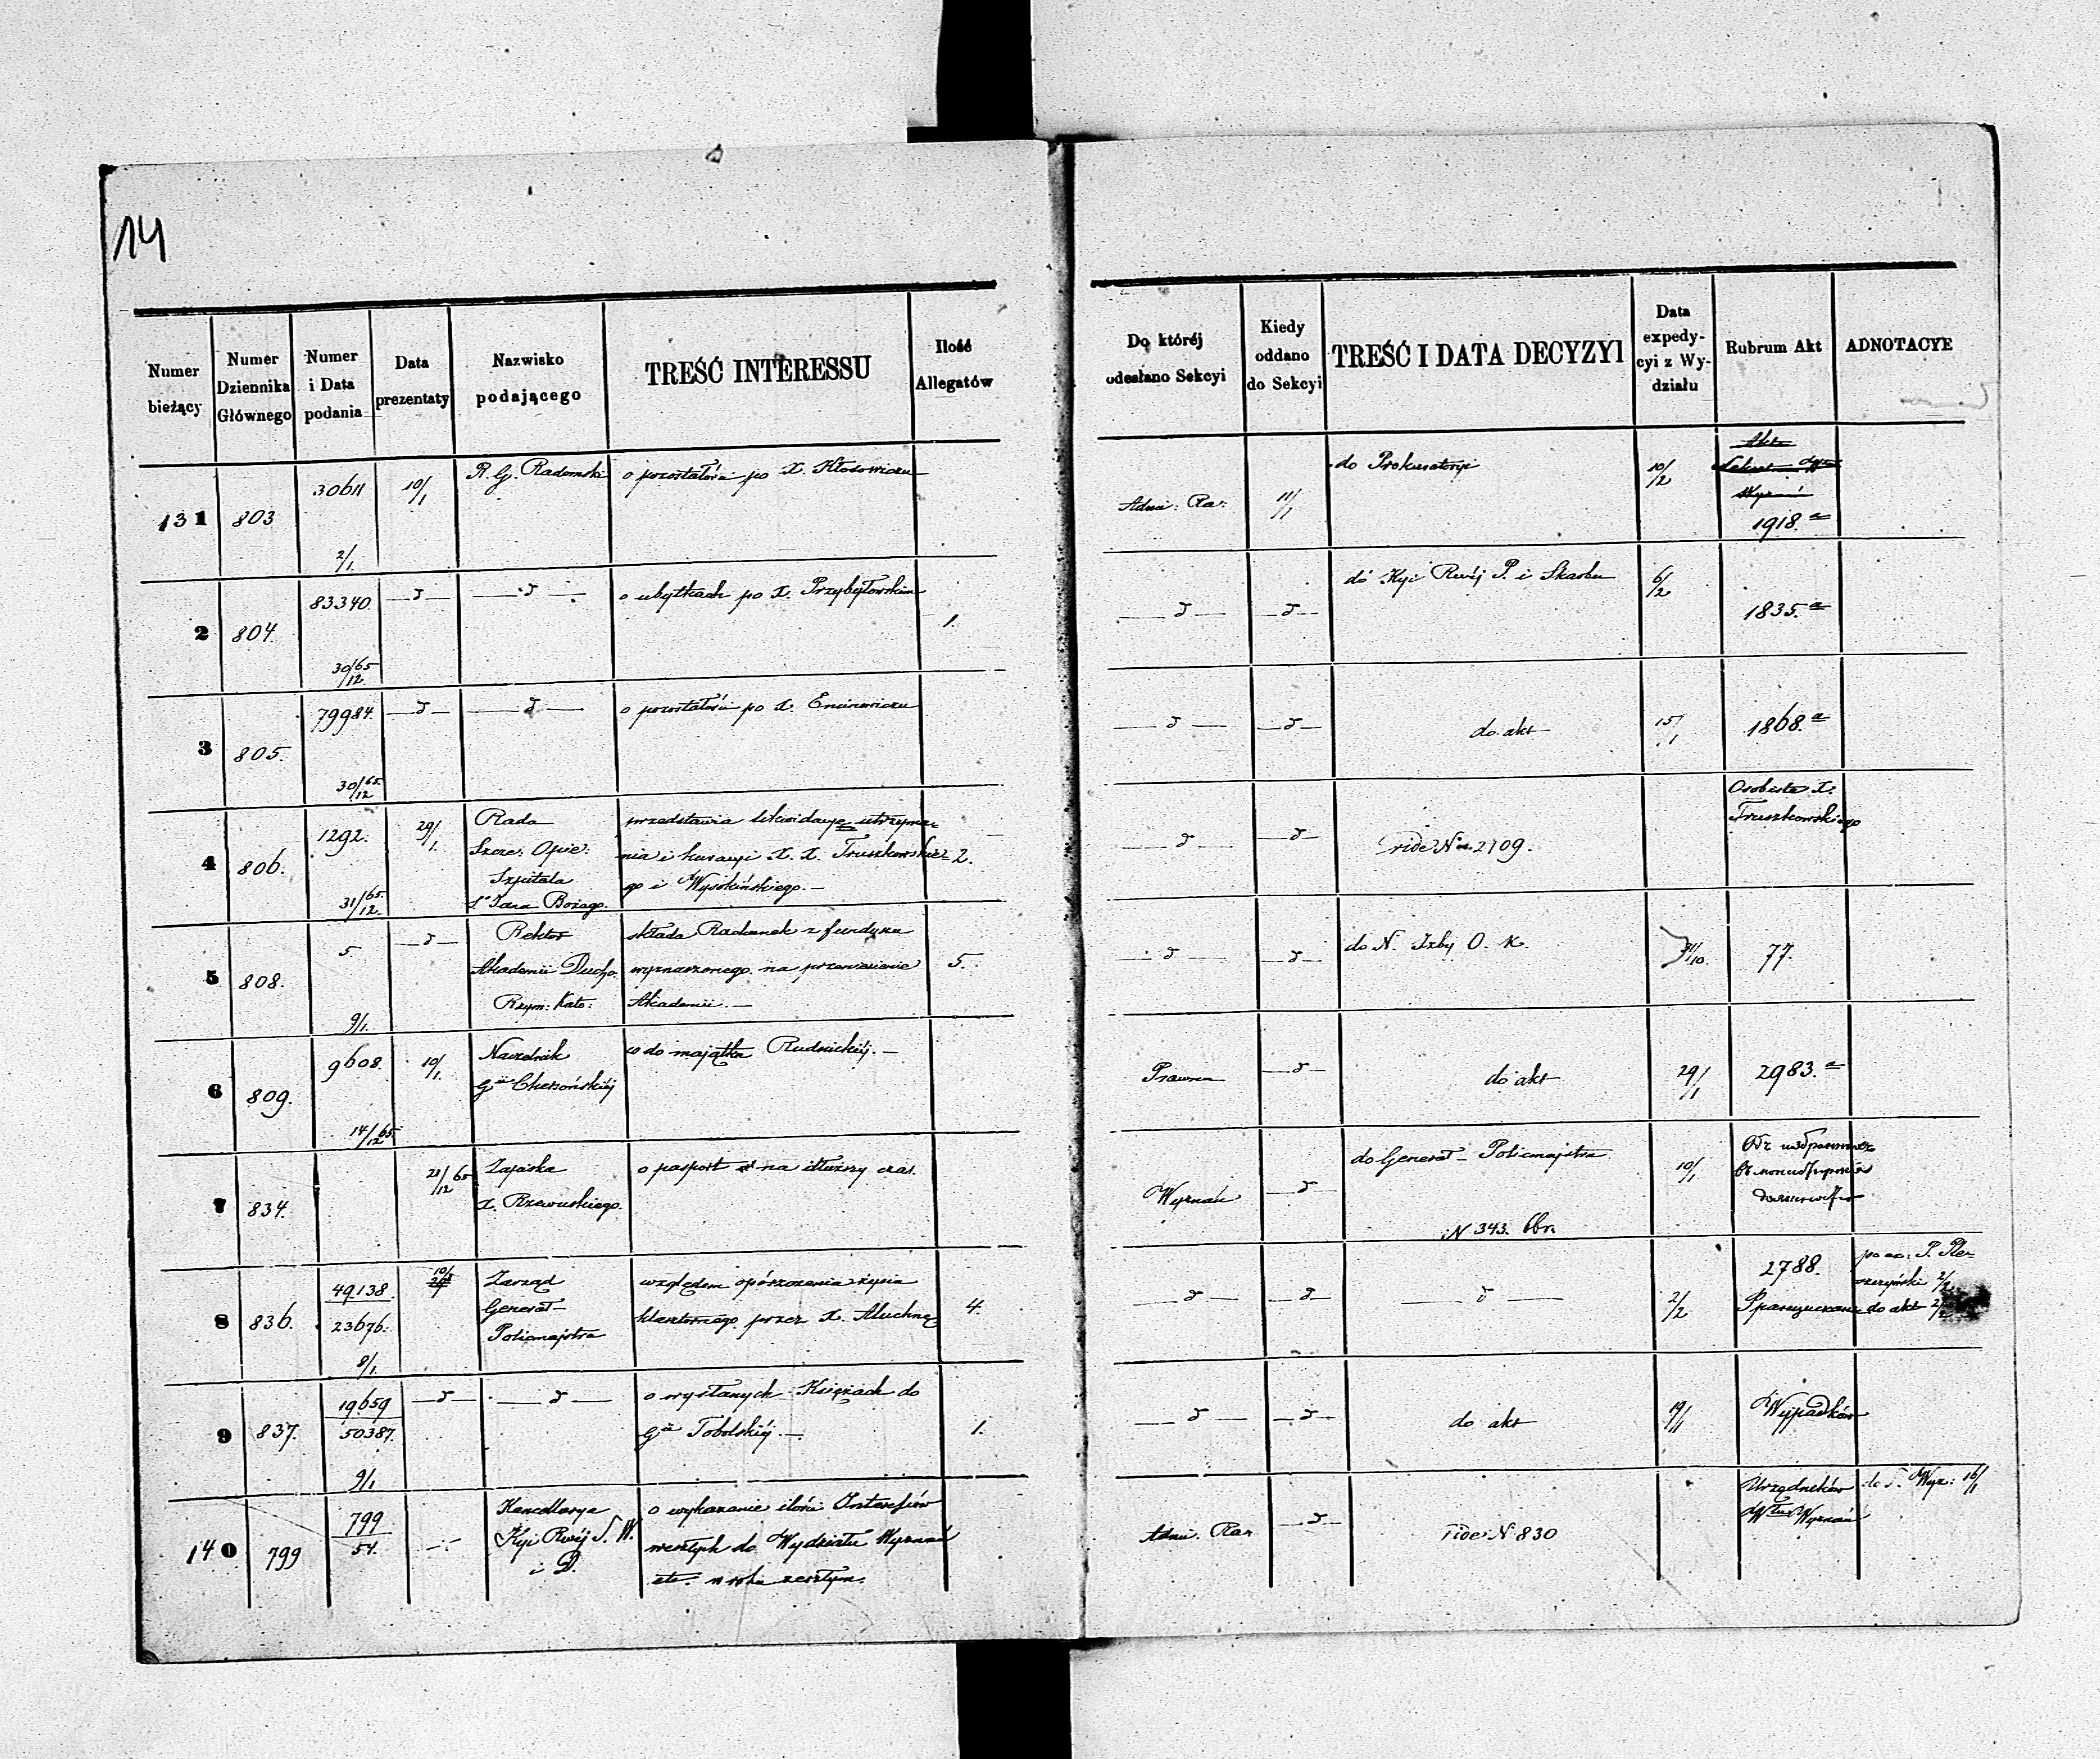 14
Numer bieżący
Numer Dziennika Głównego
Numer i Data podania
Data prezentaty
Nazwisko podającego
TREŚĆ INTERESSU
Ilość Allegatów
Do której odesłano Sekcyi
Kiedy oddano do Sekcyi
TREŚĆ I DATA DECYZYI
Data expedycyi z Wydziału
Rubrum Akt
ADNOTACYE
131 803 30611 2/1 10/1 R. G. Radomski
o pozostałości po X. Kłosowiczu
Adm: Ra: 11/1 do Prokuratoryi 10/2
1918.a
2 804. 83340. 30/12 65 d d
o ubytkach po X. Przybyłowskim 1.
d d do Kyi Rwéj P. i Skarbu 6/2 1835.a
3 805. 79984. 30/12 65. d d
o pozostałości po X.
d d do akt 15/1 1868.a
4 806. 1292. 31/12 65. 29/1.
Rada
Szcze: Opie:
Szpitala
Sgo Jana Bożego.
przedstawia likwidacye utrzyma-
nia i kuracyi X. X. Truszkowskie-
go i Wysokińskiego. — 2.
d d vide N 2709.
Osobiste X.
Truszkowskiego
5 808. 5. 9/1. d
Rektor
Akademii Ducho.
Rzym: Kato:
składa Rachunek z funduszu
wyznaczonego na przeniesienie
Akademii. — 5.
d d do N. Izby O. K. 31/10. 77.
6 809. 9608. 14/12 65. 10/1.
Naczelnik
Gii Chersońskiéj
co do majątku Rudnickiéj. —
Prawna d do akt 29/1 2983.a
7 834. 21/12 65
Zapaska
X. Rzewuskiego.
o pasport na dłuższy czas.
Wyznań d do Generał-Policmajstra
N 343. 10/1
8 836. 49138. 23676. 8/1 10/1
Zarząd
Generał-
Policmajstra
względem opószczenia życia
klasztornego przez X. Muchnę 4.
d d d 2/2 2788.
do akt 2/2
9 837. 19659 50387. 9/1 d d
o wysłanych Księżach do
Gii Tobolskiéj. — 1.
d d do akt 19/1 Wypadków
140 799 799 54.
Kancellarya
Kyi Rwéj S. W.
i D.
o wykazanie ilości Interesów
weszłych do Wydziału Wyznań
etc. w roku zeszłym.
Adm. Ra: d vide N 830
Urzędników
Włu Wyznań
do S. Wyz: 16/1